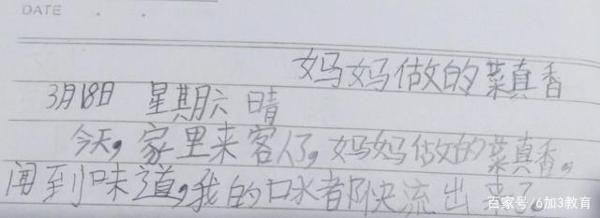 DATE
妈妈做的菜真香
3月18日 星期六 晴
今天，家里来客人了，妈妈做的菜真香。
闻到味道，我的口水都快流出来了
百家号/6加3教育